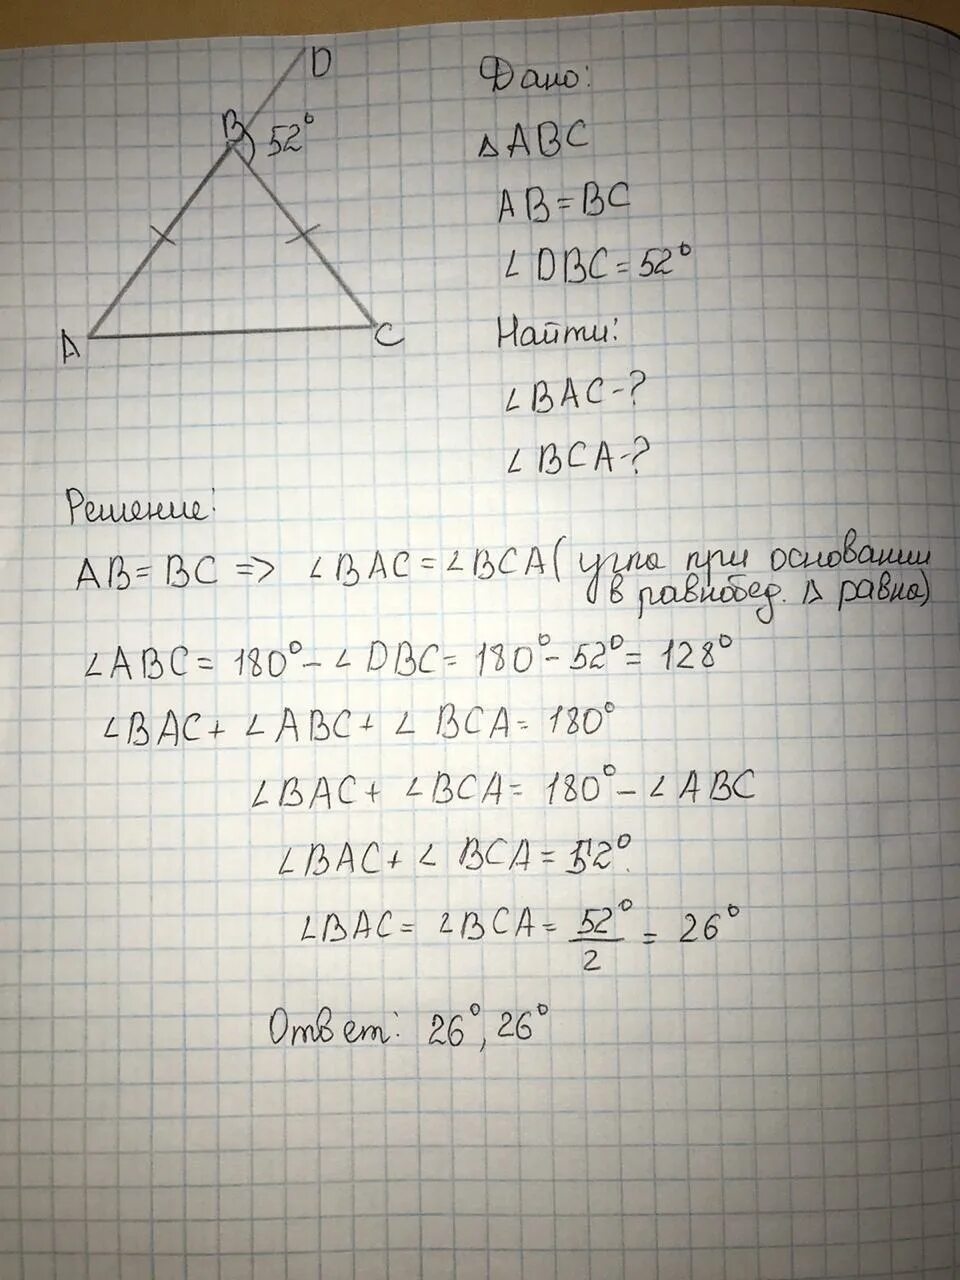 D
B
52°
A
C
Дано:
△ABC
AB=BC
∠DBC=52°
Найти:
∠BAC-?
∠BCA-?
Решение:
AB=BC => ∠BAC=∠BCA (угла при основании
в равнобед. △ равна)
∠ABC=180°-∠DBC=180°-52°=128°
∠BAC+∠ABC+∠BCA=180°
∠BAC+∠BCA=180°-∠ABC
∠BAC+∠BCA=52°
∠BAC=∠BCA=52°/2=26°
Ответ: 26°, 26°